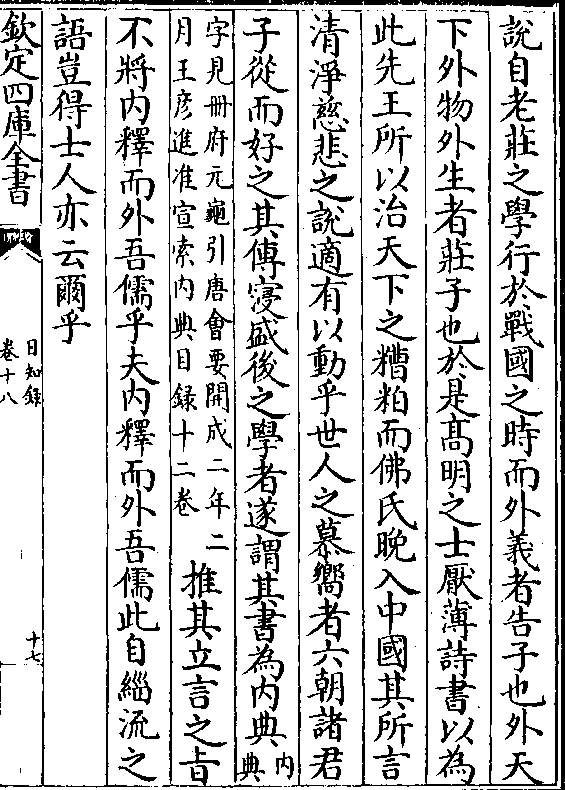 說自老莊之學行於戰國之時而外義者告子也外天
下外物外生者莊子也於是髙明之士厭薄詩書以為
此先王所以治天下之糟粕而佛氏晚入中國其所言
清淨慈悲之說適有以動乎世人之慕嚮者六朝諸君
子從而好之其傳寖盛後之學者遂謂其書為内典内
典
字見冊府元龜引唐會要開成二年二
月王彦進准宣索内典目録十二卷
推其立言之旨
不將内釋而外吾儒乎夫内釋而外吾儒此自緇流之
語豈得士人亦云爾乎
欽定四庫全書
日知録
卷十八
十七